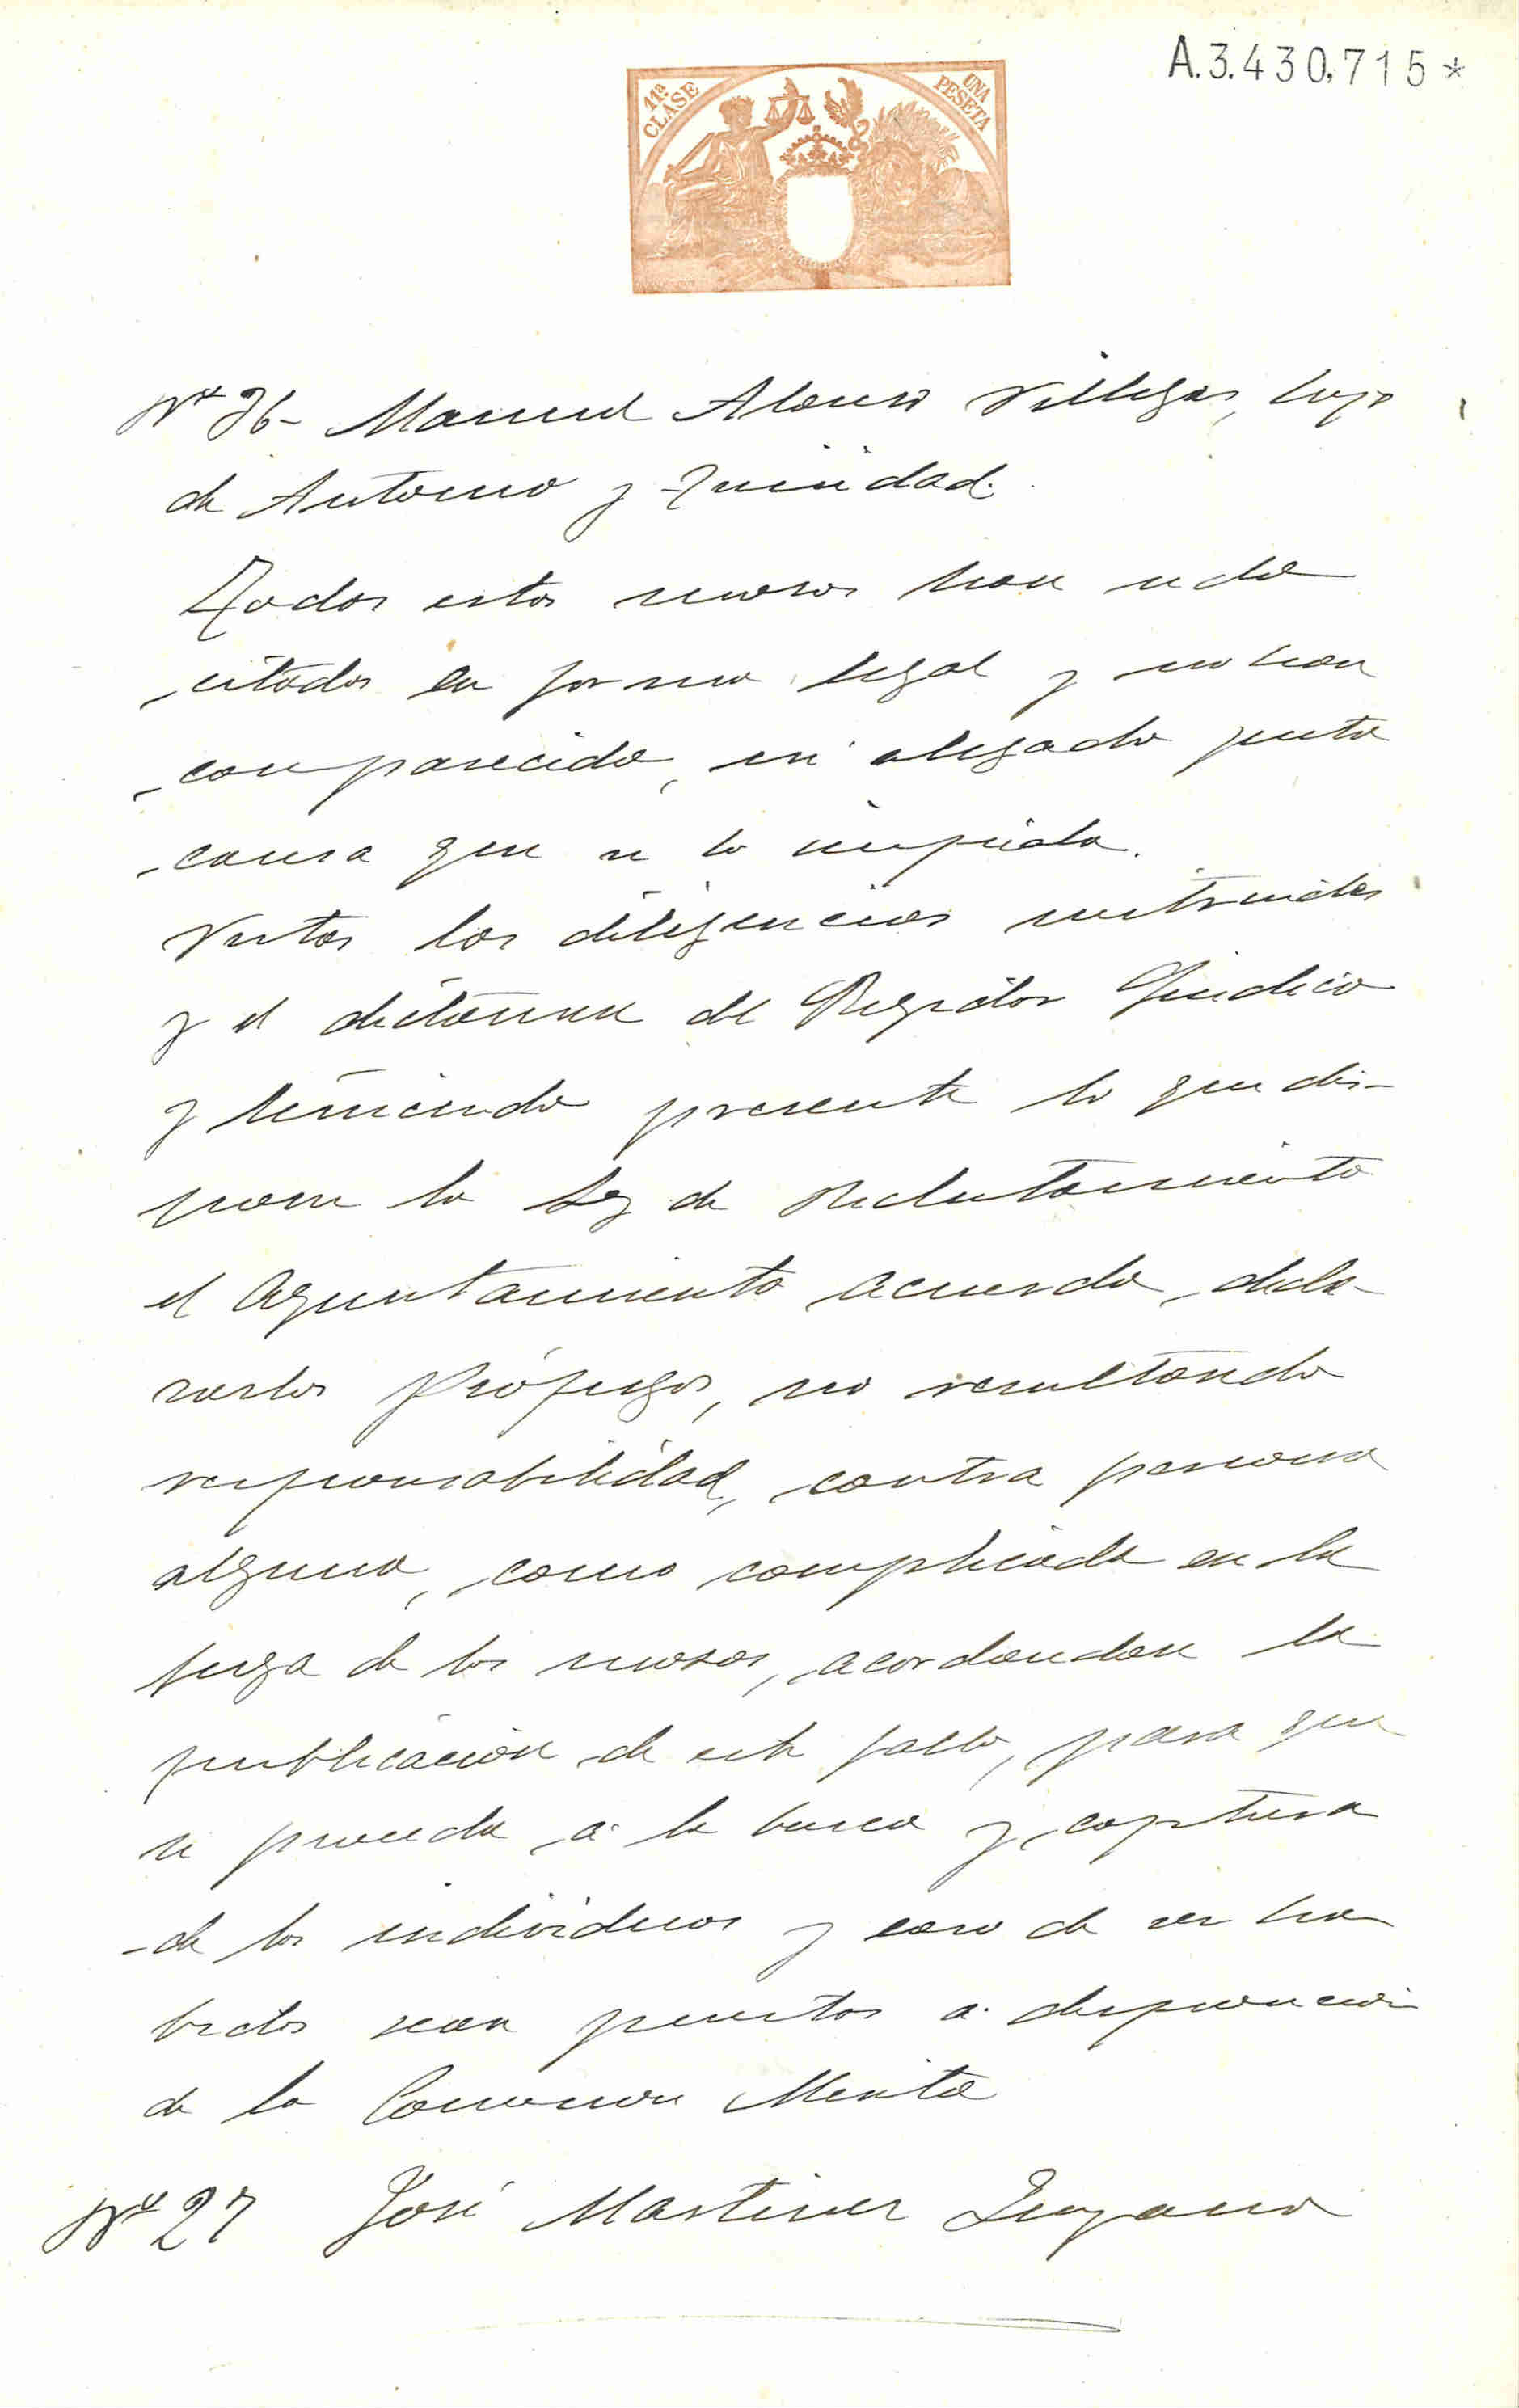 A.3.430,715*
11ª CLASE
UNA PESETA
Nº 76- Manuel Alonso Villegas, hijo
de Antonio y Trinidad.
Todos estos mozos han sido
citados en forma legal y no han
comparecido, ni alegado justa
causa que se lo impida.
Vistas las diligencias instruidas
y el dictamen del Regidor Sindico
y teniendo presente lo que dis-
pone la Ley de Reclutamiento
el Ayuntamiento acuerda decla-
rarlos Prófugos, no resultando
responsabilidad, contra persona
alguna, como complicada en la
fuga de los mozos, acordandose la
publicación de este fallo, para que
se proceda a la busca y captura
de los individuos y caso de ser ha
bidos sean puestos a disposición
de la Comision Mixta
Nº 27 José Martinez